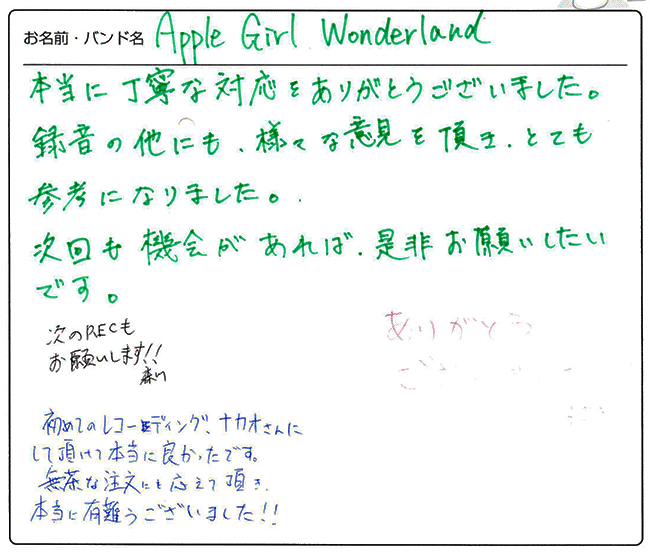 お名前・バンド名 Apple Girl Wonderland
本当に丁寧な対応をありがとうございました。
録音の他にも、様々な意見を頂き、とても
参考になりました。
次回も機会があれば、是非お願いしたい
です。
次のRECも
お願いします!!
ありがとう
ござ
初めてのレコーディング、ナカオさんに
して頂けて本当に良かったです。
無茶な注文にも応えて頂き、
本当に有難うございました!!